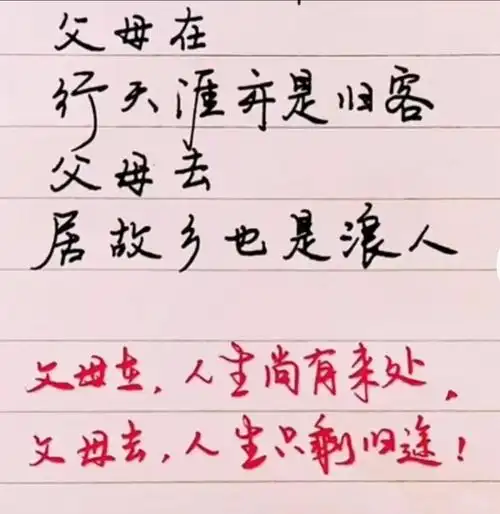 父母在
行天涯亦是归客
父母去
居故乡也是浪人
父母在,人生尚有来处,
父母去,人生只剩归途!